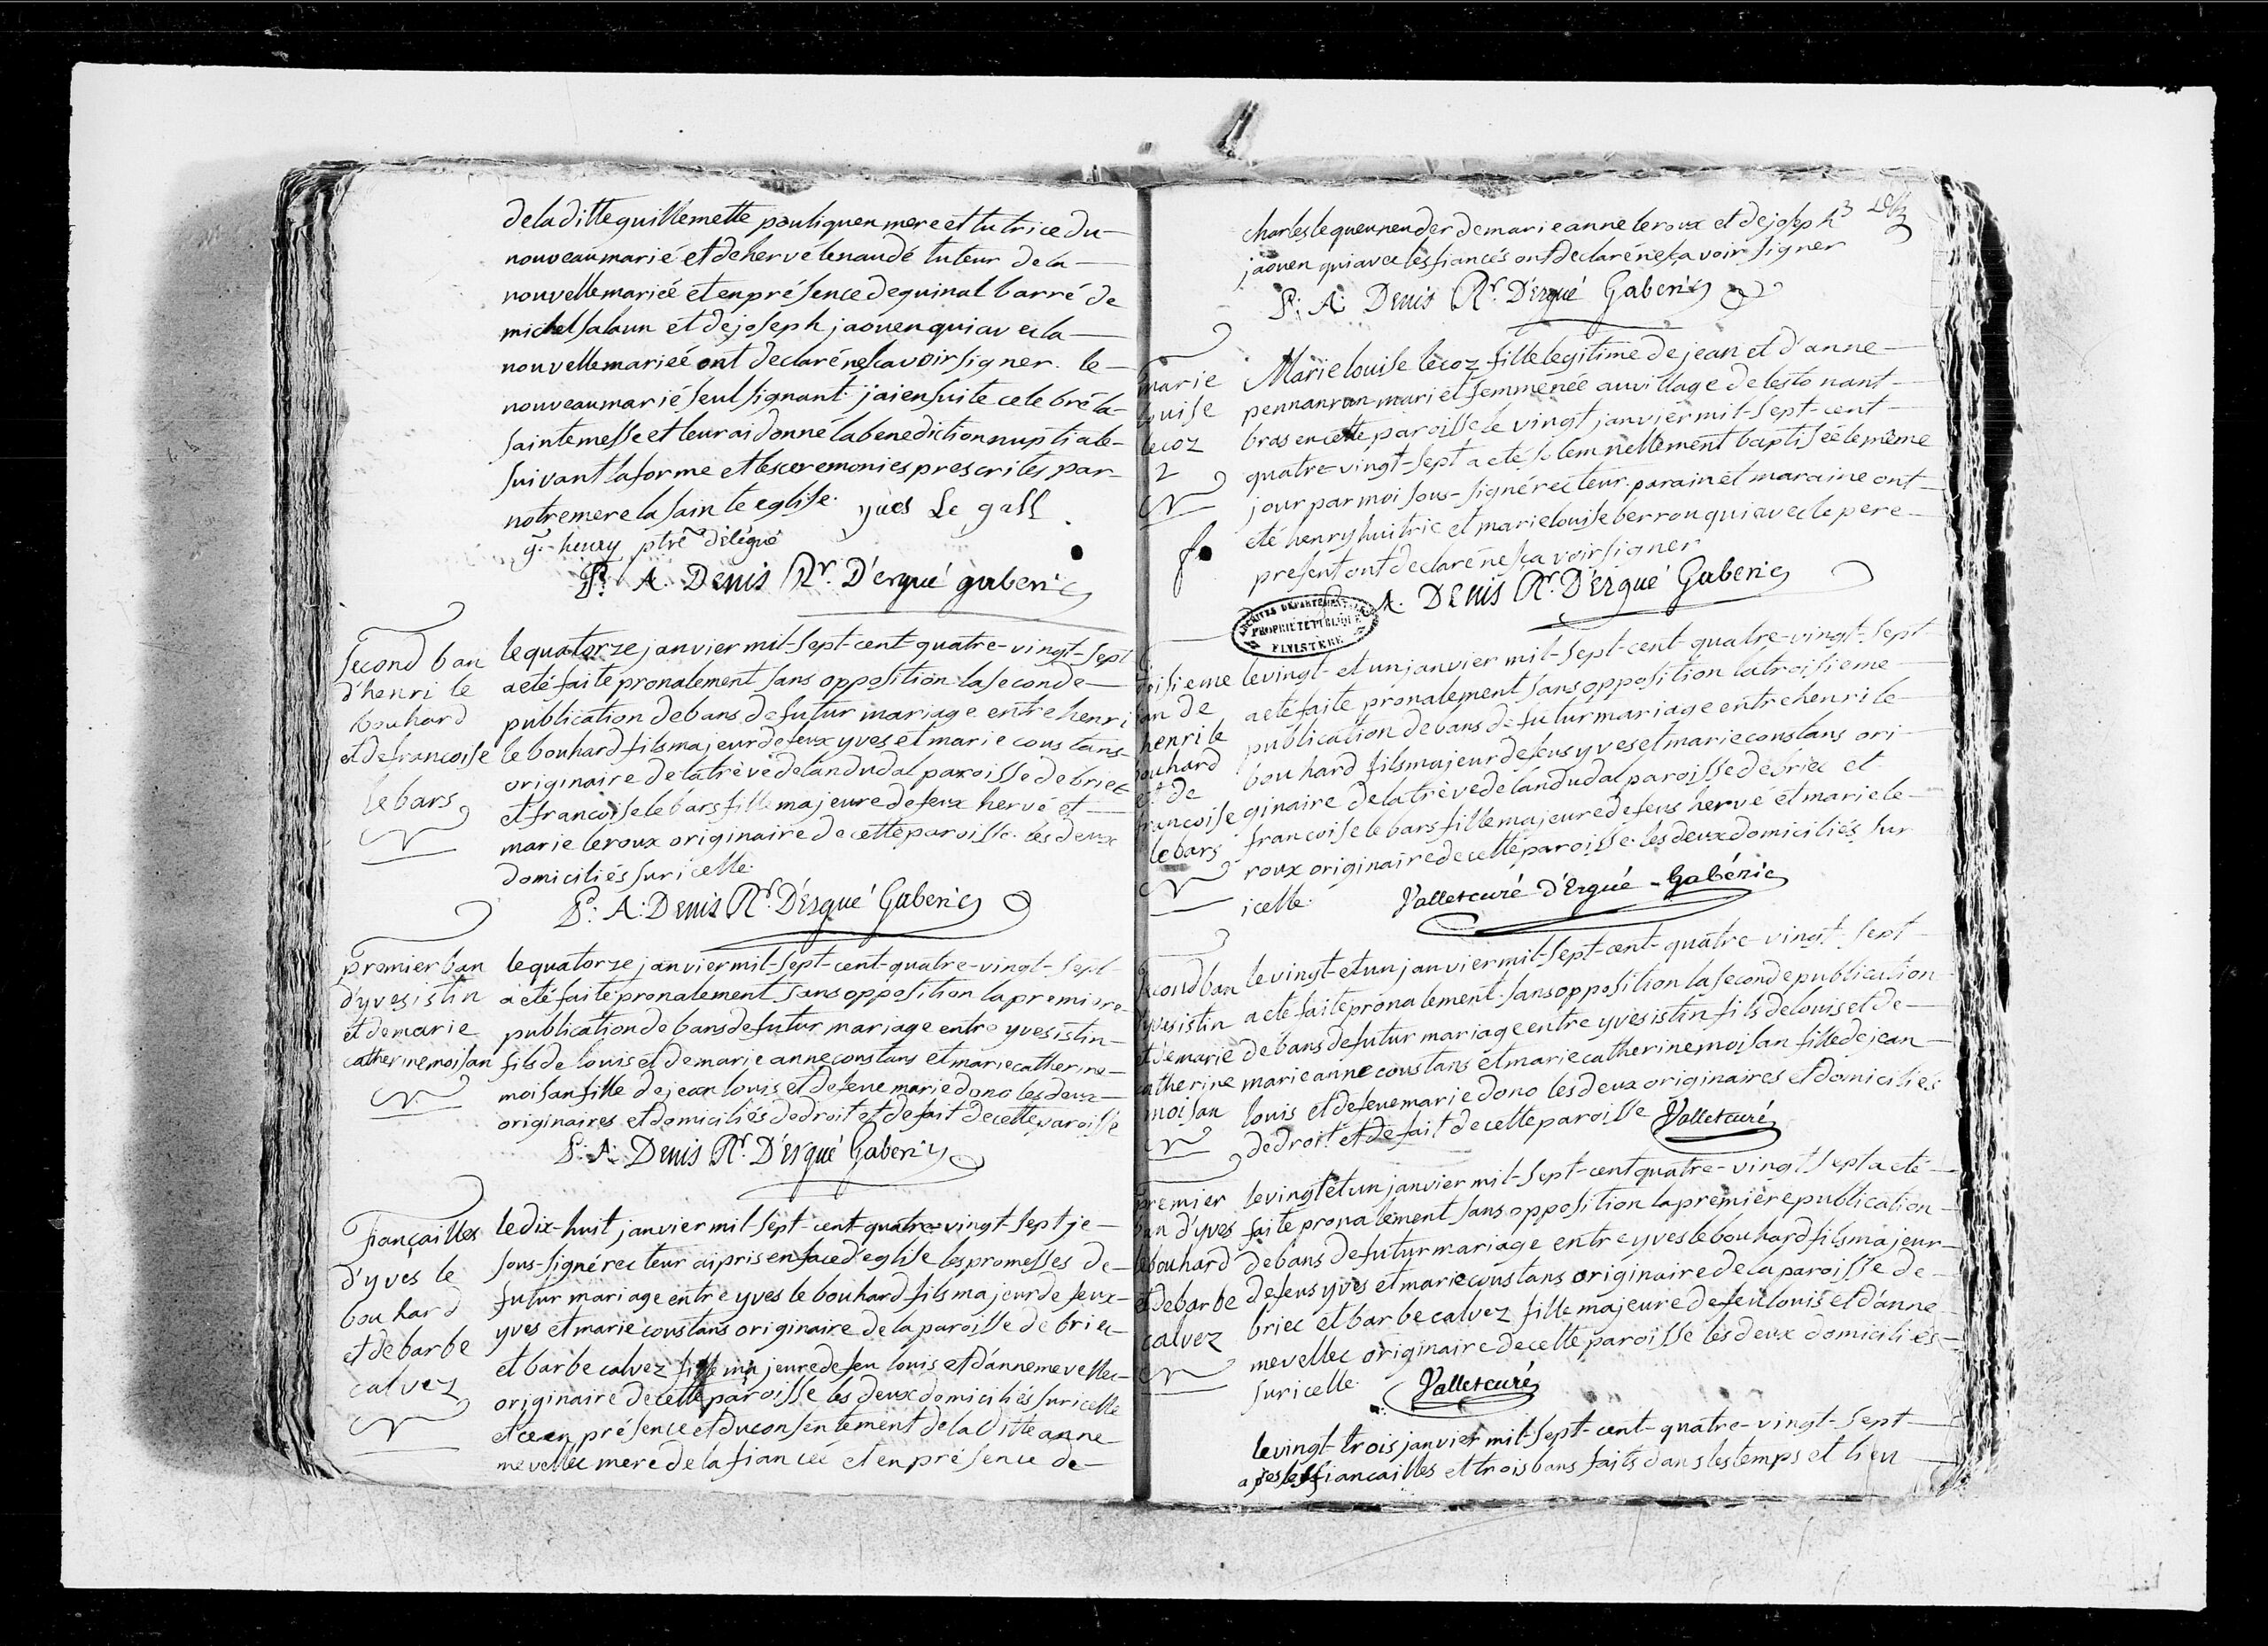 de la ditte guillemette pouliquen mere et tutrice du
nouveau marié et de hervé lenaudé tuteur de la
nouvelle mariée et en présence de guinal barré de
michel salaun et de joseph jaouen qui avec la
nouvelle mariée ont declaré ne sçavoir signer. le
nouveau marié seul signant. j'ai ensuite celebré la
sainte messe et leur ai donné la benediction nuptiale
suivant la forme et les ceremonies prescrites par
notre mere la sainte eglise. yves Le gall
g. henry ptre délégué
P. A. Denis Rr. D'ergué gaberic
Second ban
d'henri le
bouhard
et de francoise
le bars
le quatorze janvier mil-sept-cent-quatre-vingt-sept
a eté faite pronalement sans opposition la seconde
publication de bans de futur mariage entre henri
le bouhard fils majeur de feux yves et marie coustans
originaire de la trève de landudal paroisse de briec
et francoise le bars fille majeure de feux hervé et
marie leroux originaire de cette paroisse. les deux
domiciliés sur icelle.
P. A. Denis Rr. D'Ergué Gaberic
premier ban
d'yves istin
et de marie
catherine moisan
le quatorze janvier mil-sept-cent-quatre-vingt-sept
a eté faite pronalement sans opposition la premiere
publication de bans de futur mariage entre yves istin
fils de louis et de marie anne coustans et marie catherine
moisan fille de jean louis et de feue marie dono les deux
originaires et domiciliés de droit et de fait de cette paroisse
P. A. Denis Rr. D'Ergué Gaberic
Fiançailles
d'yves le
bouhard
et de barbe
calvez
le dix-huit janvier mil sept-cent-quatre-vingt-sept je
sous-signé recteur ai pris en face d'eglise les promesses de
futur mariage entre yves le bouhard fils majeur de feux
yves et marie coustans originaire de la paroisse de briec
et barbe calvez fille majeure de feu louis et d'anne mevellec
originaire de cette paroisse les deux domiciliés sur icelle
et ce en présence et du consentement de la ditte anne
mevellec mere de la fiancée et en présence de
charles le queuneuder de marie anne leroux et de joseph
jaouen qui avec les fiancés ont declaré ne sçavoir signer
P. A. Denis Rr. D'Ergué Gaberic
marie
louise
lecoz
2
f.
Marie louise lecoz fille legitime de jean et d'anne
pennanrun mari et femme née au village de lestonant
bras en cette paroisse le vingt janvier mil-sept-cent
quatre-vingt-sept a eté solemnellement baptisée le même
jour par moi sous-signé recteur. parain et maraine ont
eté henry huitric et marie louise berrou qui avec le pere
present ont declaré ne sça voir signer
A. Denis Rr. D'Ergué Gaberic
ARCHIVES DÉPARTEMENTALES
PROPRIÉTÉ PUBLIQUE
FINISTÈRE
troisieme
ban de
henri le
bouhard
et de
francoise
le bars
le vingt-et un janvier mil-sept-cent-quatre-vingt-sept
a eté faite pronalement sans opposition la troisieme
publication de bans de futur mariage entre henri le
bouhard fils majeur de feus yves et marie coustans ori
ginaire de la trève de landudal paroisse de briec et
francoise le bars fille majeure de feus hervé et marie le
roux originaire de cette paroisse. les deux domiciliés sur
icelle. Vallet curé d'Ergué-Gabéric
second ban
yves istin
et de marie
catherine
moisan
le vingt-et un janvier mil-sept-cent-quatre-vingt sept
a eté faite pronalement. sans opposition la seconde publication
de bans de futur mariage entre yves istin fils de louis et de
marie anne coustans et marie catherine moisan fille de jean
louis et de feue marie dono les deux originaires et domiciliés
de droit et de fait de cette paroisse Vallet curé
premier
ban d'yves
le bouhard
et de barbe
calvez
le vingt et un janvier mil-sept-cent quatre-vingt sept a eté
faite pronalement sans opposition la première publication
de bans de futur mariage entre yves le bouhard fils majeur
de feus yves et marie coustans originaire de la paroisse de
briec et barbe calvez fille majeure de feu louis et d'anne
mevellec originaire de cette paroisse les deux domiciliés
sur icelle. Vallet curé
le vingt-trois janvier mil-sept-cent-quatre-vingt-sept
apres les fiancailles et trois bans faits dans les temps et lieu